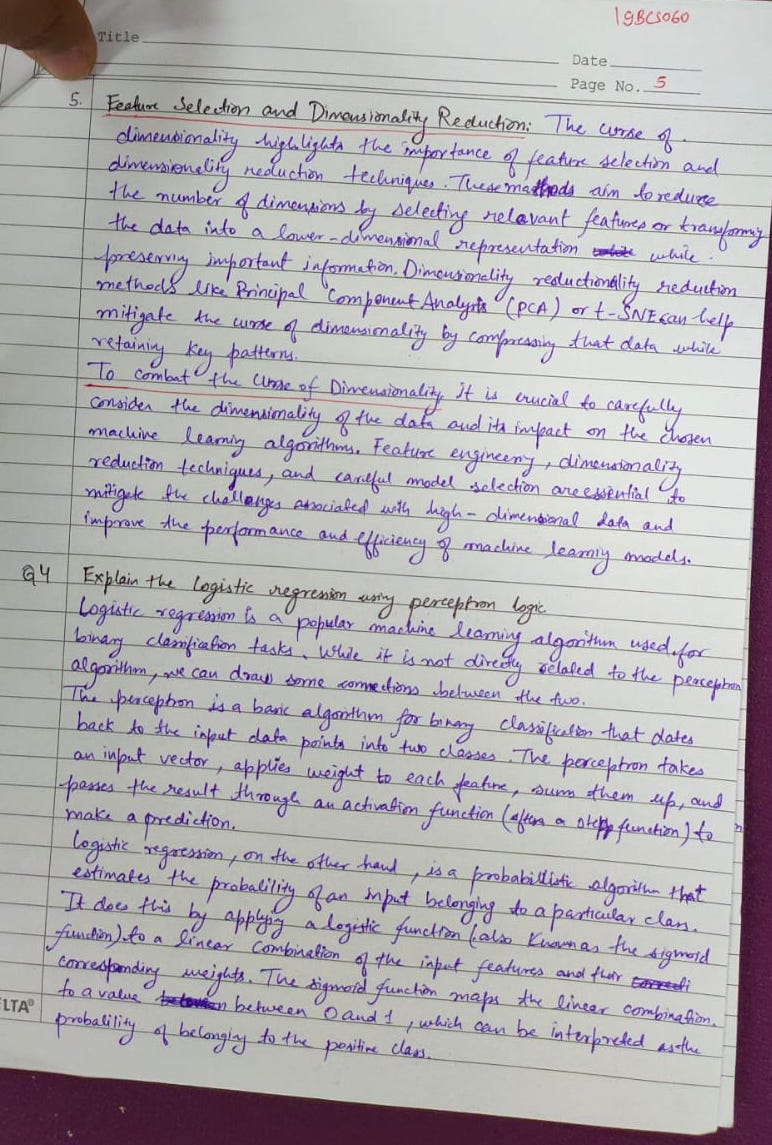 19BCS060
Title
Date
Page No. 5
5. Feature Selection and Dimensionality Reduction: The curse of
dimensionality highlights the importance of feature selection and
dimensionality reduction techniques. These methods aim to reduce
the number of dimensions by selecting relevant features or transforming
the data into a lower-dimensional representation while
preserving important information. Dimensionality reductionality reduction
methods like Principal Component Analysis (PCA) or t-SNE can help
mitigate the curse of dimensionality by compressing that data while
retaining key patterns.
To combat the Curse of Dimensionality it is crucial to carefully
consider the dimensionality of the data and its impact on the chosen
machine learning algorithms. Feature engineering, dimensionality
reduction techniques, and careful model selection are essential to
mitigate the challenges associated with high-dimensional data and
improve the performance and efficiency of machine learning models.
Q4 Explain the logistic regression using perceptron logic
Logistic regression is a popular machine learning algorithm used for
binary classification tasks. While it is not directly related to the perceptron
algorithm, we can draw some connections between the two.
The perceptron is a basic algorithm for binary classification that dates
back to the input data points into two classes. The perceptron takes
an input vector, applies weight to each feature, sum them up, and
passes the result through an activation function (often a step function) to
make a prediction.
Logistic regression, on the other hand, is a probabilistic algorithm that
estimates the probability of an input belonging to a particular class.
It does this by applying a logistic function (also known as the sigmoid
function) to a linear combination of the input features and their
corresponding weights. The sigmoid function maps the linear combination
to a value between 0 and 1, which can be interpreted as the
probability of belonging to the positive class.
ELTA®